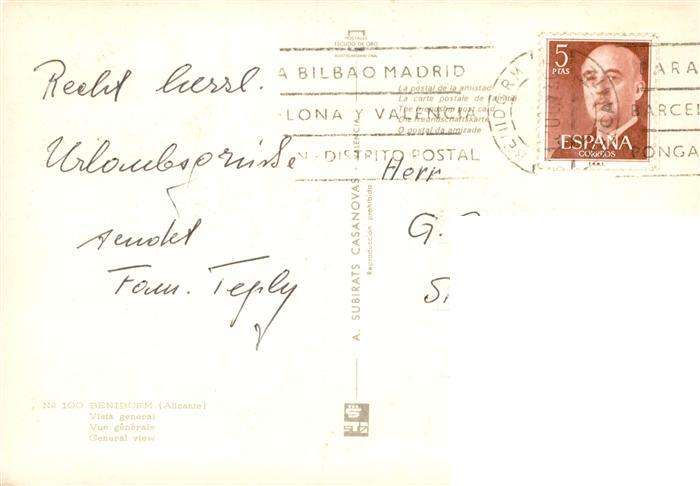 Recht herzl.
Urlaubsgrüsse
sendet
Fam. Teply
Nº 100 BENIDORM (Alicante)
Vista general
Vue générale
General view
POSTALES
ESCUDO DE ORO
A. SUBIRATS CASANOVAS - VALENCIA
Reproducción prohibida
La postal de la amistad
La carte postale de l'amitié
The friendship post card
Die Freundschaftskarte
O postal da amizade
A BILBAO MADRID
LONA Y VALENCIA
N - DISTRITO POSTAL
BENIDORM
5
PTAS
ESPAÑA
CORREOS
ARA
BARCE
PONGA
Herr
G.